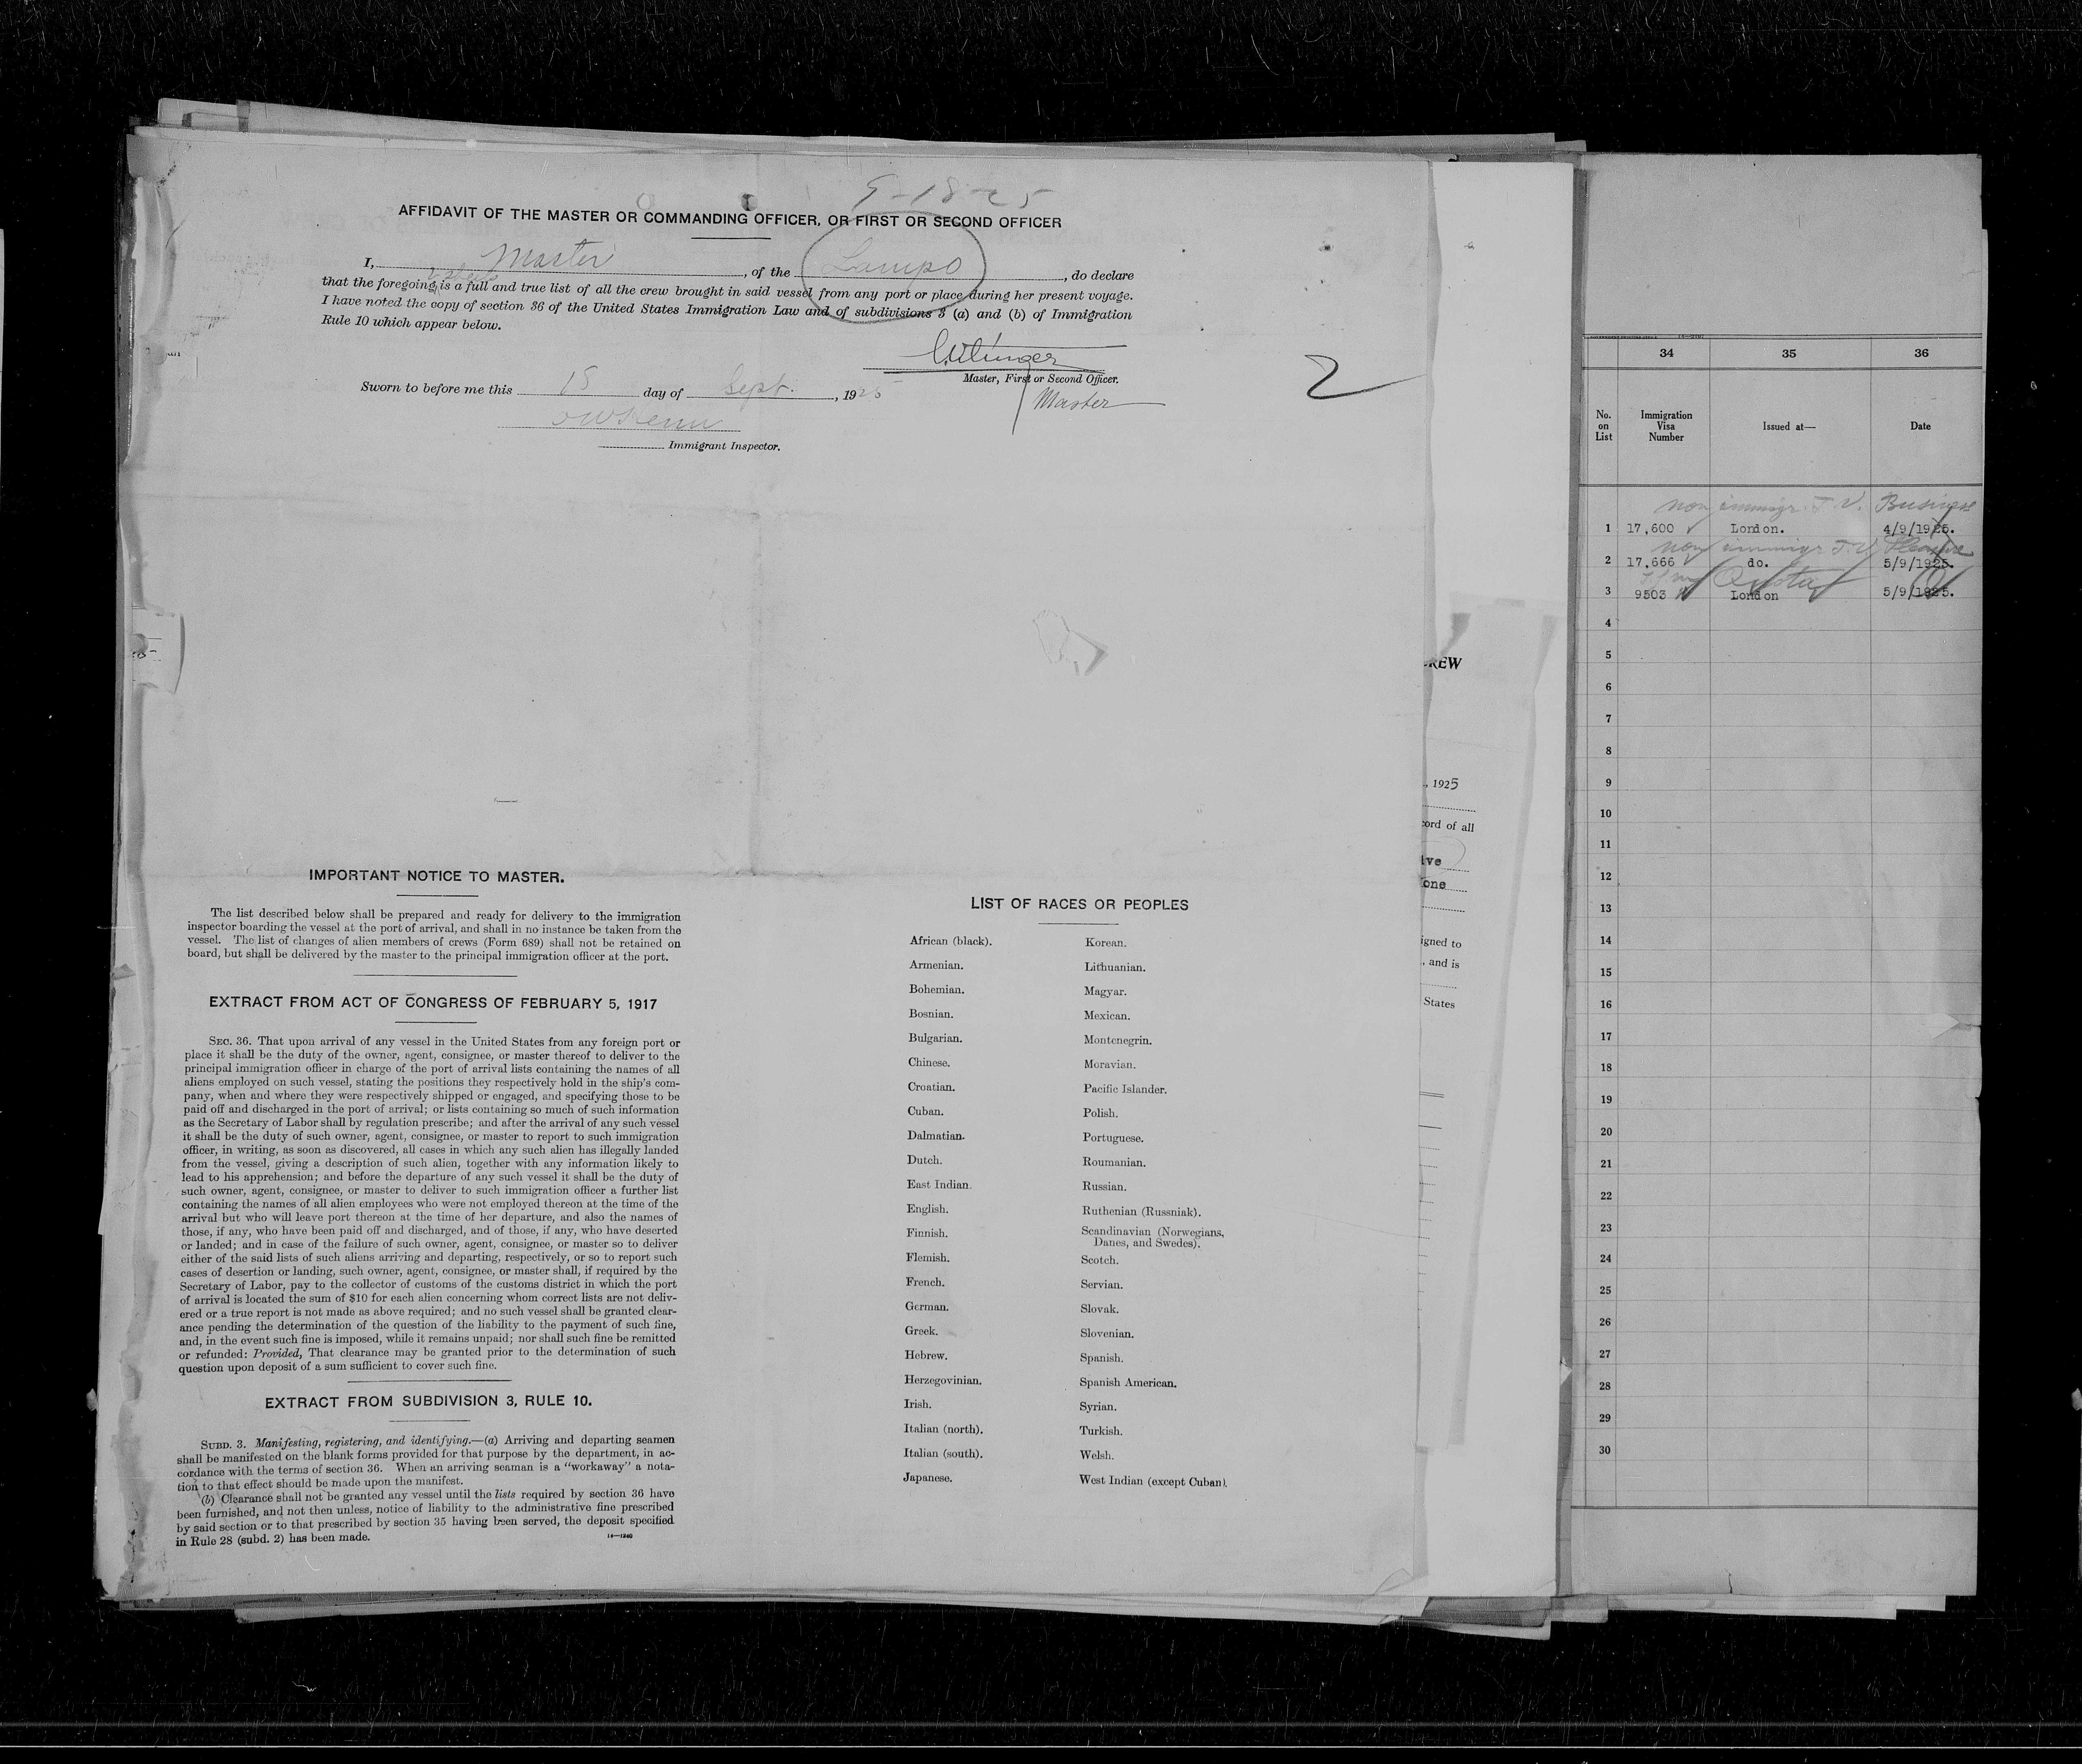 9-18-25
AFFIDAVIT OF THE MASTER OR COMMANDING OFFICER, OR FIRST OR SECOND OFFICER
I, Master, of the Lampo, do declare
that the foregoing is a full and true list of all the crew brought in said vessel from any port or place during her present voyage.
I have noted the copy of section 36 of the United States Immigration Law and of subdivisions 3 (a) and (b) of Immigration
Rule 10 which appear below.
Master, First or Second Officer.
Master
2
Sworn to before me this 18 day of Sept., 1925
Immigrant Inspector.
IMPORTANT NOTICE TO MASTER.
The list described below shall be prepared and ready for delivery to the immigration
inspector boarding the vessel at the port of arrival, and shall in no instance be taken from the
vessel. The list of changes of alien members of crews (Form 689) shall not be retained on
board, but shall be delivered by the master to the principal immigration officer at the port.
EXTRACT FROM ACT OF CONGRESS OF FEBRUARY 5, 1917
SEC. 36. That upon arrival of any vessel in the United States from any foreign port or
place it shall be the duty of the owner, agent, consignee, or master thereof to deliver to the
principal immigration officer in charge of the port of arrival lists containing the names of all
aliens employed on such vessel, stating the positions they respectively hold in the ship's com-
pany, when and where they were respectively shipped or engaged, and specifying those to be
paid off and discharged in the port of arrival; or lists containing so much of such information
as the Secretary of Labor shall by regulation prescribe; and after the arrival of any such vessel
it shall be the duty of such owner, agent, consignee, or master to report to such immigration
officer, in writing, as soon as discovered, all cases in which any such alien has illegally landed
from the vessel, giving a description of such alien, together with any information likely to
lead to his apprehension; and before the departure of any such vessel it shall be the duty of
such owner, agent, consignee, or master to deliver to such immigration officer a further list
containing the names of all alien employees who were not employed thereon at the time of the
arrival but who will leave port thereon at the time of her departure, and also the names of
those, if any, who have been paid off and discharged, and of those, if any, who have deserted
or landed; and in case of the failure of such owner, agent, consignee, or master so to deliver
either of the said lists of such aliens arriving and departing, respectively, or so to report such
cases of desertion or landing, such owner, agent, consignee, or master shall, if required by the
Secretary of Labor, pay to the collector of customs of the customs district in which the port
of arrival is located the sum of $10 for each alien concerning whom correct lists are not deliv-
ered or a true report is not made as above required; and no such vessel shall be granted clear-
ance pending the determination of the question of the liability to the payment of such fine,
and, in the event such fine is imposed, while it remains unpaid; nor shall such fine be remitted
or refunded: Provided, That clearance may be granted prior to the determination of such
question upon deposit of a sum sufficient to cover such fine.
EXTRACT FROM SUBDIVISION 3, RULE 10.
SUBD. 3. Manifesting, registering, and identifying.—(a) Arriving and departing seamen
shall be manifested on the blank forms provided for that purpose by the department, in ac-
cordance with the terms of section 36. When an arriving seaman is a "workaway" a nota-
tion to that effect should be made upon the manifest.
(b) Clearance shall not be granted any vessel until the lists required by section 36 have
been furnished, and not then unless, notice of liability to the administrative fine prescribed
by said section or to that prescribed by section 35 having been served, the deposit specified
in Rule 28 (subd. 2) has been made.
LIST OF RACES OR PEOPLES
African (black). Korean.
Armenian. Lithuanian.
Bohemian. Magyar.
Bosnian. Mexican.
Bulgarian. Montenegrin.
Chinese. Moravian.
Croatian. Pacific Islander.
Cuban. Polish.
Dalmatian. Portuguese.
Dutch. Roumanian.
East Indian. Russian.
English. Ruthenian (Russniak).
Finnish. Scandinavian (Norwegians,
Danes, and Swedes).
Flemish. Scotch.
French. Servian.
German. Slovak.
Greek. Slovenian.
Hebrew. Spanish.
Herzegovinian. Spanish American.
Irish. Syrian.
Italian (north). Turkish.
Italian (south). Welsh.
Japanese. West Indian (except Cuban).
REW
, 1925
cord of all
ive
one
igned to
, and is
States
34 35 36
No. on List
Immigration Visa Number
Issued at—
Date
non immigr. T.V. Business
1 17,600 London. 4/9/1925.
non immigr T.V. Pleasure
2 17,666 do. 5/9/1925.
Quota
3 9503 London 5/9/1925.
4
5
6
7
8
9
10
11
12
13
14
15
16
17
18
19
20
21
22
23
24
25
26
27
28
29
30